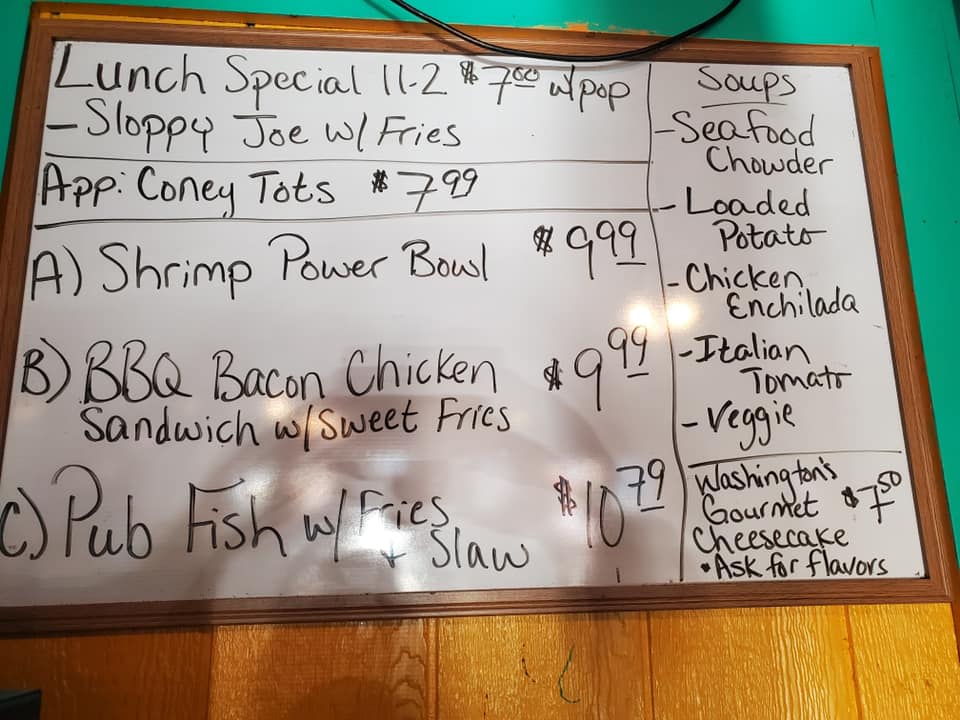 Lunch Special 11-2 $7.00 w/pop
- Sloppy Joe w/ Fries
App: Coney Tots $7.99
A) Shrimp Power Bowl $9.99
B) BBQ Bacon Chicken $9.99
Sandwich w/ Sweet Fries
C) Pub Fish w/ Fries $10.79
+ Slaw
Soups
- Seafood
Chowder
- Loaded
Potato
- Chicken
Enchilada
- Italian
Tomato
- Veggie
Washington's
Gourmet $7.50
Cheesecake
• Ask for flavors